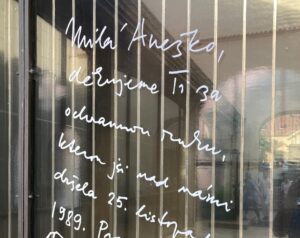 Milá Anežko,
děkujeme Ti za
ochrannou ruku,
kterou jsi nad námi
držela 25. listopad
1989.